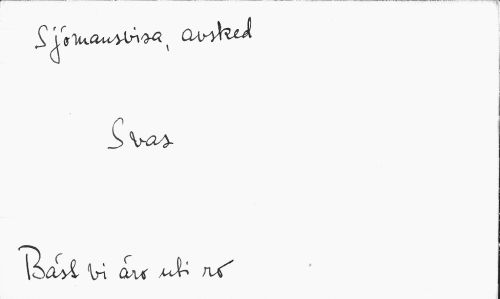 Sjömansvisa, avsked
Svas
Bäst vi äro uti ro